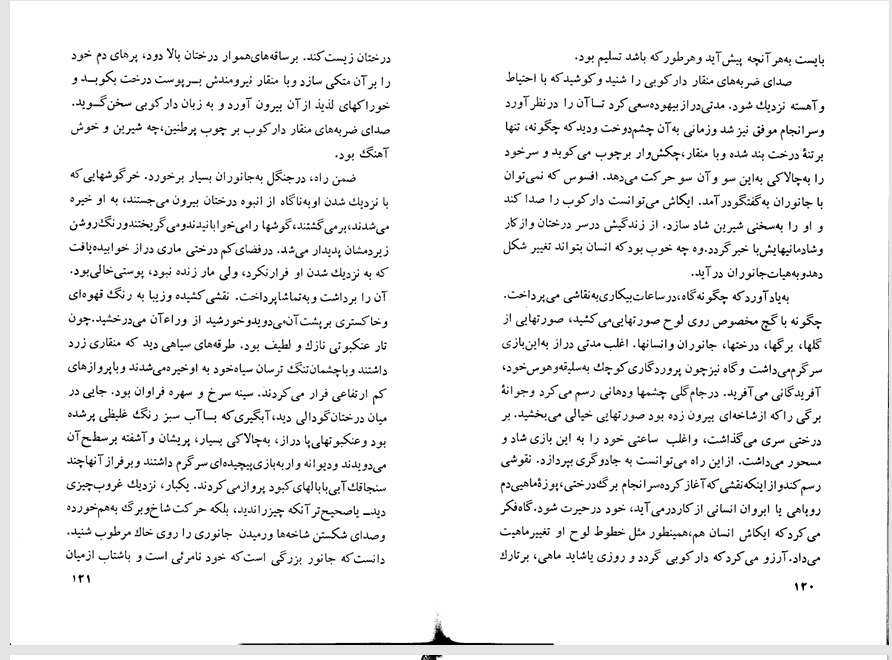 بایست به‌هر آنچه پیش‌آید و هرطور که باشد تسلیم بود.
صدای ضربه‌های منقار دارکوبی را شنید و کوشید که با احتیاط
و آهسته نزدیك شود. مدتی دراز بیهوده سعی کرد تا آن را در نظر آورد
و سرانجام موفق نیز شد و زمانی به آن چشم دوخت و دید که چگونه، تنها
بر تنهٔ درخت بند شده و با منقار، چکش‌وار بر چوب می‌کوبد و سر خود
را به‌چالاکی به این سو و آن سو حرکت می‌دهد. افسوس که نمی‌توان
با جانوران به‌گفتگو در آمد. ایکاش می‌توانست دارکوب را صدا کند
و او را به‌سخنی شیرین شاد سازد. از زندگیش در سر درختان و از کار
و شادمانیهایش با خبر گردد. وه چه خوب بود که انسان بتواند تغییر شکل
دهد و به هیات جانوران در آید.
به‌یاد آورد که چگونه گاه، در ساعات بیکاری به نقاشی می‌پرداخت.
چگونه با گچ مخصوص روی لوح صورتهایی می‌کشید، صورتهایی از
گلها، برگها، درختها، جانوران و انسانها. اغلب مدتی دراز به این بازی
سرگرم می‌داشت و گاه نیز چون پروردگاری کوچك به سلیقه و هوس خود،
آفریدگانی می‌آفرید. در جام گلی چشمها و دهانی رسم می‌کرد و جوانهٔ
برگی را که از شاخه‌ای بیرون زده بود صورتهایی خیالی می‌بخشید. بر
درختی سری می‌گذاشت، و اغلب ساعتی خود را به این بازی شاد و
مسحور می‌داشت. از این راه می‌توانست به جادوگری بپردازد. نقوشی
رسم کند و از اینکه نقشی که آغاز کرده سرانجام برگ درختی، پوزهٔ ماهیی دم
روباهی یا ابروان انسانی از کار در می‌آید، خود در حیرت شود. گاه فکر
می‌کرد که ایکاش انسان هم، همینطور مثل خطوط لوح او تغییر ماهیت
می‌داد. آرزو می‌کرد که دارکوبی گردد و روزی یا شاید ماهی، بر تارك
۱۲۰
درختان زیست کند. بر ساقه‌های هموار درختان بالا دود، پرهای دم خود
را بر آن متکی سازد و با منقار نیرومندش بر پوست درخت بکوبد و
خوراکهای لذیذ از آن بیرون آورد و به زبان دارکوبی سخن گوید.
صدای ضربه‌های منقار دارکوب بر چوب پرطنین، چه شیرین و خوش
آهنگ بود.
ضمن راه، در جنگل به‌جانوران بسیار برخورد. خرگوشهایی که
با نزدیك شدن او به‌ناگاه از انبوه درختان بیرون می‌جستند، به او خیره
می‌شدند، برمی‌گشتند، گوشها را می‌خوابانیدند و می‌گریختند و رنگ روشن
زیر دمشان پدیدار می‌شد. در فضای کم درختی ماری دراز خوابیده یافت
که به نزدیك شدن او فرار نکرد، ولی مار زنده نبود، پوستی خالی بود.
آن را برداشت و به‌تماشا پرداخت. نقشی کشیده و زیبا به رنگ قهوه‌ای
و خاکستری بر پشت آن می‌دوید و خورشید از وراء آن می‌درخشید. چون
تار عنکبوتی نازك و لطیف بود. طرقه‌های سیاهی دید که منقاری زرد
داشتند و با چشمان تنگ ترسان سیاه خود به او خیره می‌شدند و با پروازهای
کم ارتفاعی فرار می‌کردند. سینه سرخ و سهره فراوان بود. جایی در
میان درختان گودالی دید، آبگیری که با آب سبز رنگ غلیظی پر شده
بود و عنکبوتهای پا دراز، به‌چالاکی بسیار، پریشان و آشفته بر سطح آن
می‌دویدند و دیوانه وار به بازی پیچیده‌ای سرگرم داشتند و بر فراز آنها چند
سنجاقك آبی با بالهای کبود پرواز می‌کردند. یکبار، نزدیك غروب چیزی
دید ـ یا صحیح‌تر آنکه چیز را ندید، بلکه حرکت شاخ و برگ به‌هم خورده
و صدای شکستن شاخه‌ها و رمیدن جانوری را روی خاك مرطوب شنید.
دانست که جانور بزرگی است که خود نامرئی است و باشتاب از میان
۱۲۱